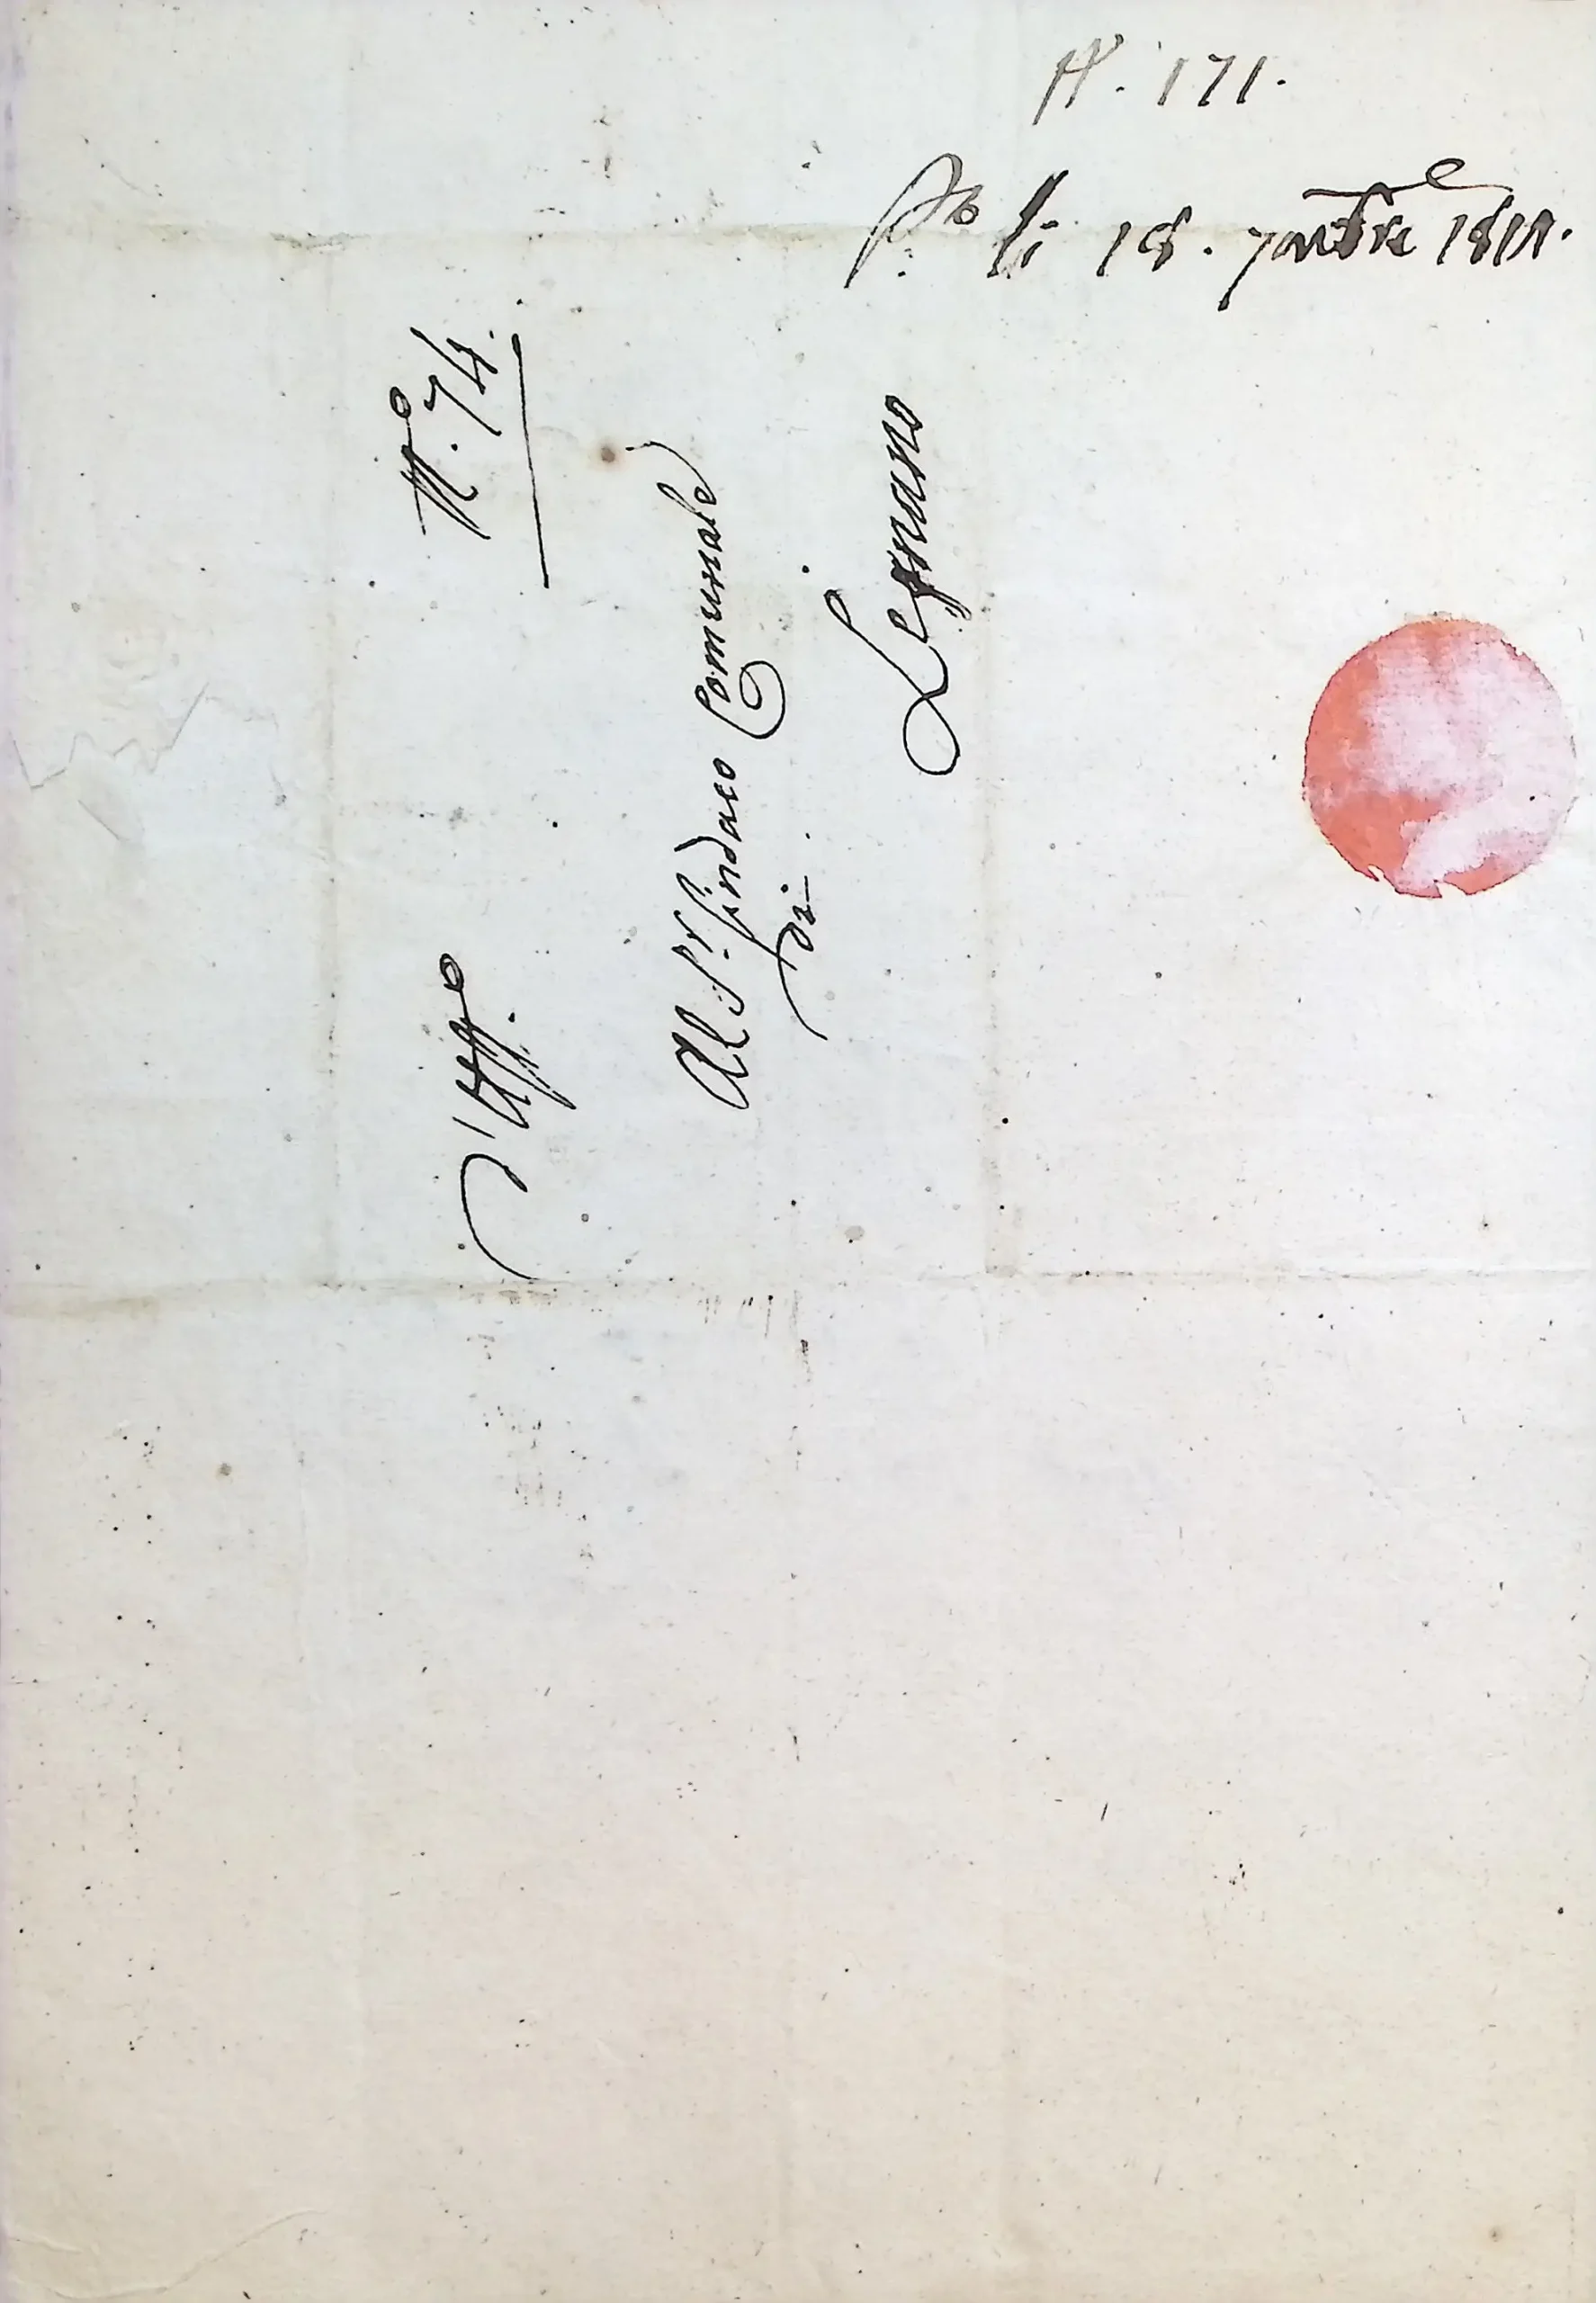 N. 171.
li 18. 7mbre 1811.
N.º 74.
D'Uff.º
Al S.r Sindaco Comunale
di
Legnano